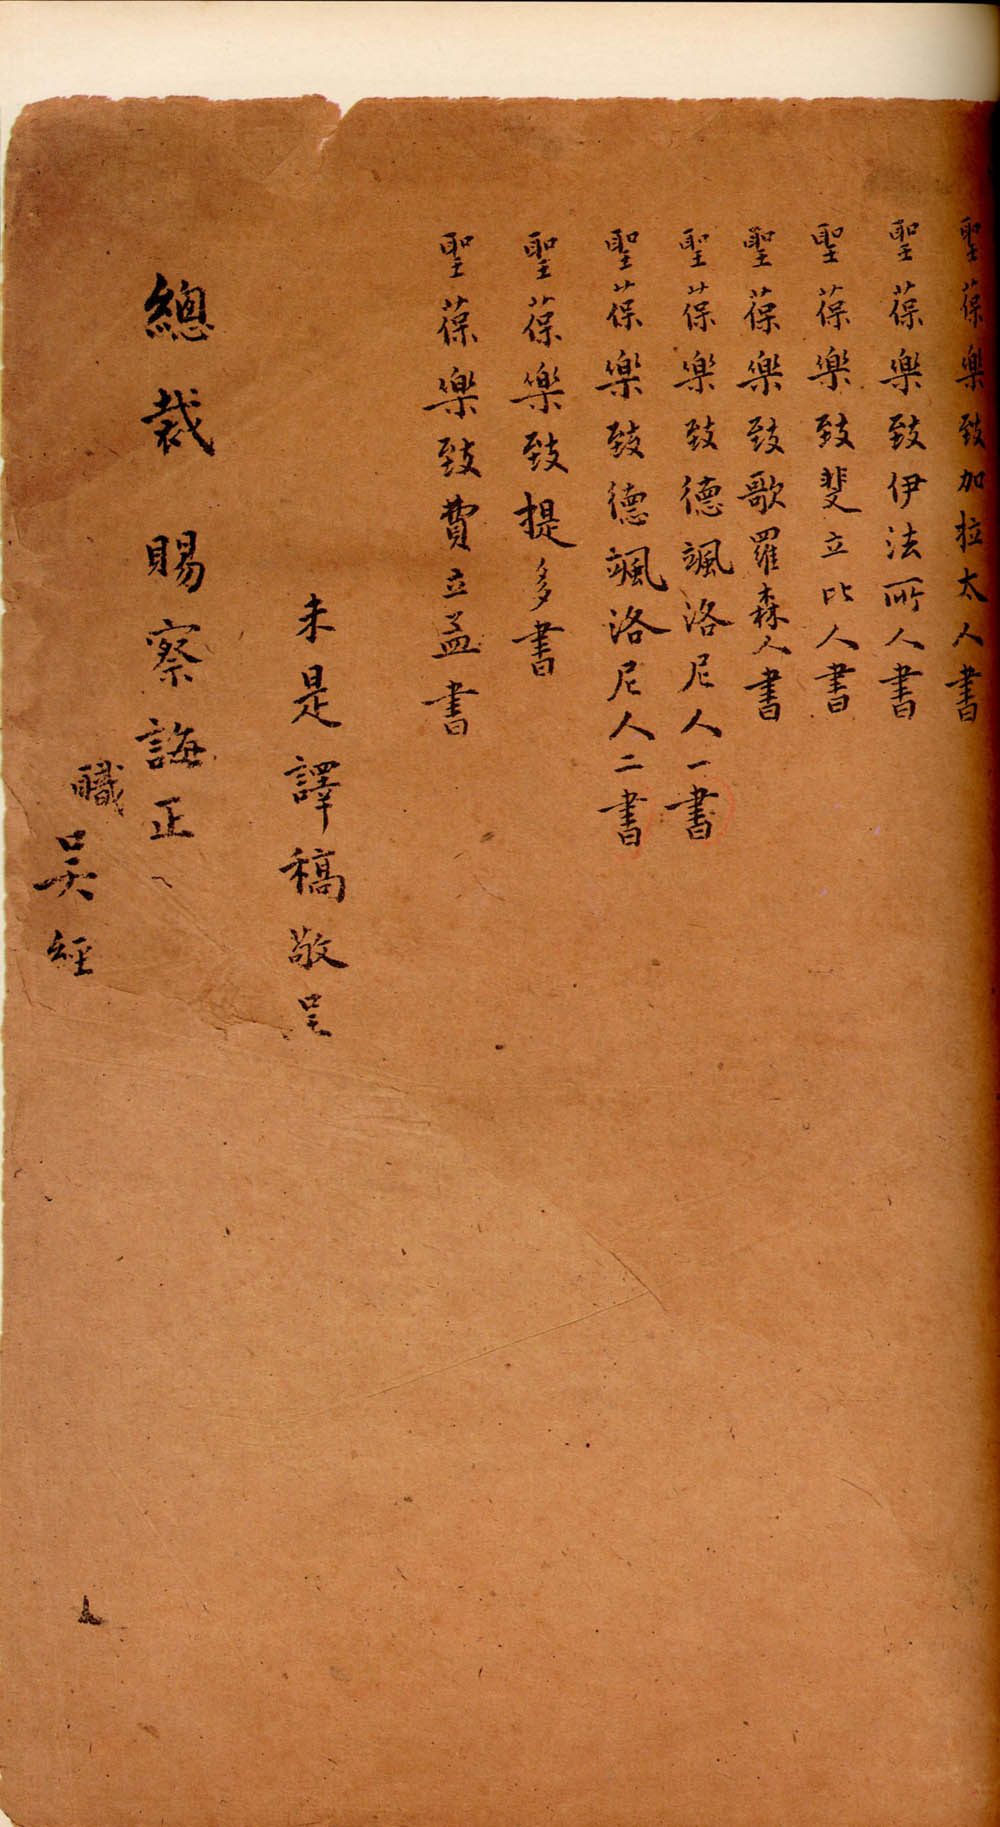 聖葆樂致加拉太人書
聖葆樂致伊法所人書
聖葆樂致斐立比人書
聖葆樂致歌羅森人書
聖葆樂致德颯洛尼人一書
聖葆樂致德颯洛尼人二書
聖葆樂致提多書
聖葆樂致費立孟書
未是譯稿敬呈
總裁 賜察誨正
職吳經